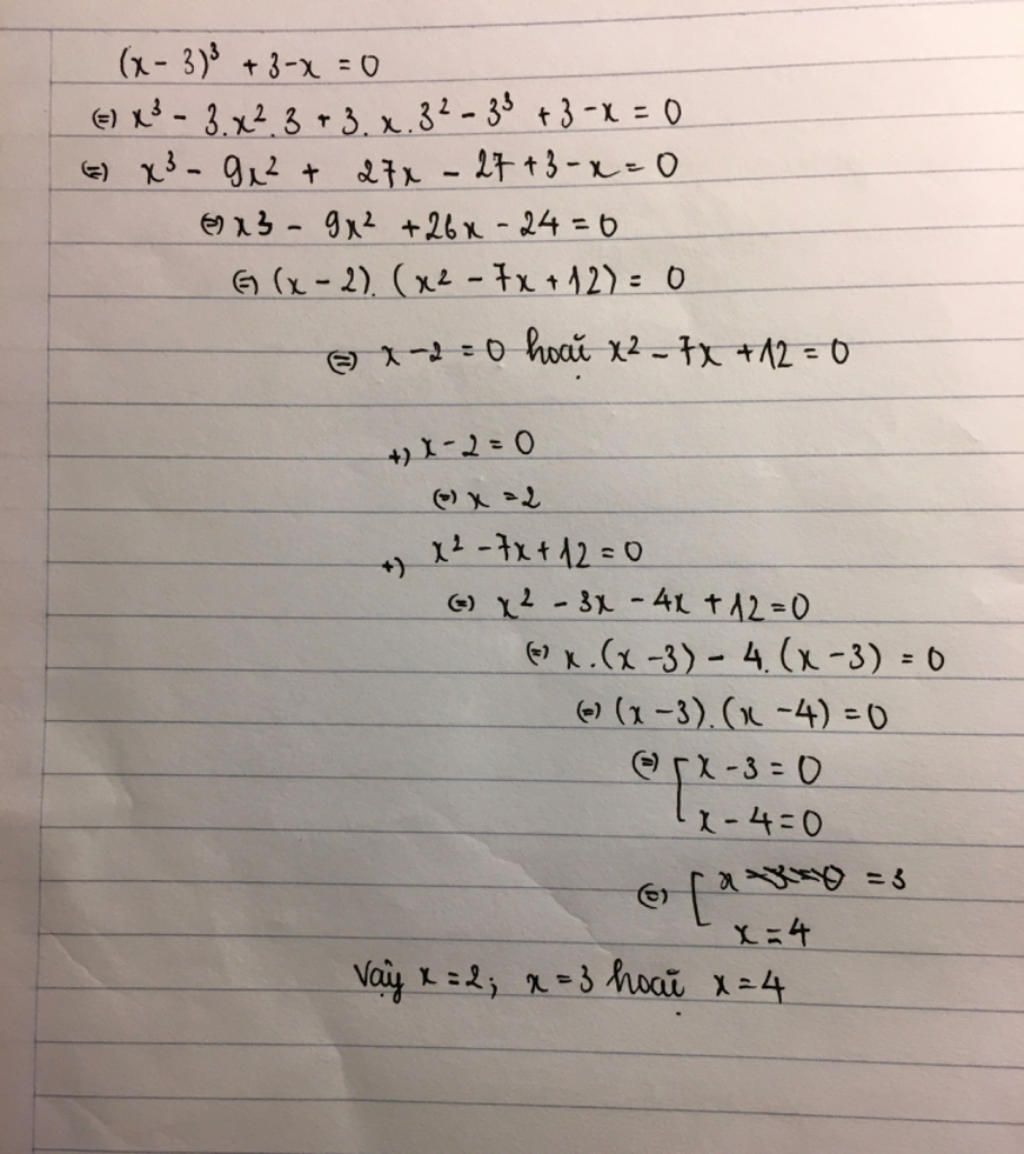 (x - 3)³ + 3 - x = 0
(=) x³ - 3.x².3 + 3.x.3² - 3³ + 3 - x = 0
(=) x³ - 9x² + 27x - 27 + 3 - x = 0
(=) x3 - 9x² + 26x - 24 = 0
(=) (x - 2).(x² - 7x + 12) = 0
(=) x - 2 = 0 hoặc x² - 7x + 12 = 0
+) x - 2 = 0
(=) x = 2
+) x² - 7x + 12 = 0
(=) x² - 3x - 4x + 12 = 0
(=) x.(x - 3) - 4.(x - 3) = 0
(=) (x - 3).(x - 4) = 0
(=) [ x - 3 = 0
x - 4 = 0
(=) [ x = 3
x = 4
Vậy x = 2; x = 3 hoặc x = 4